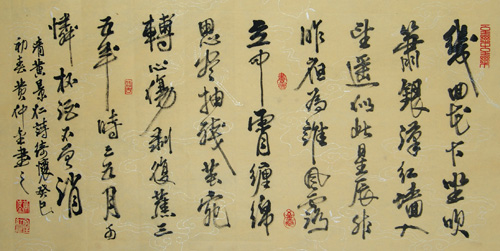 幾回花下坐吹
簫銀漢紅墙入
望遥似此星辰非
昨夜為誰風露
立中宵纏綿
思盡抽殘茧宛
轉心傷剥後蕉三
五年時三五月可
憐杯酒不曾消
清黄景仁詩绮懷癸巳
初春黄仲金書之